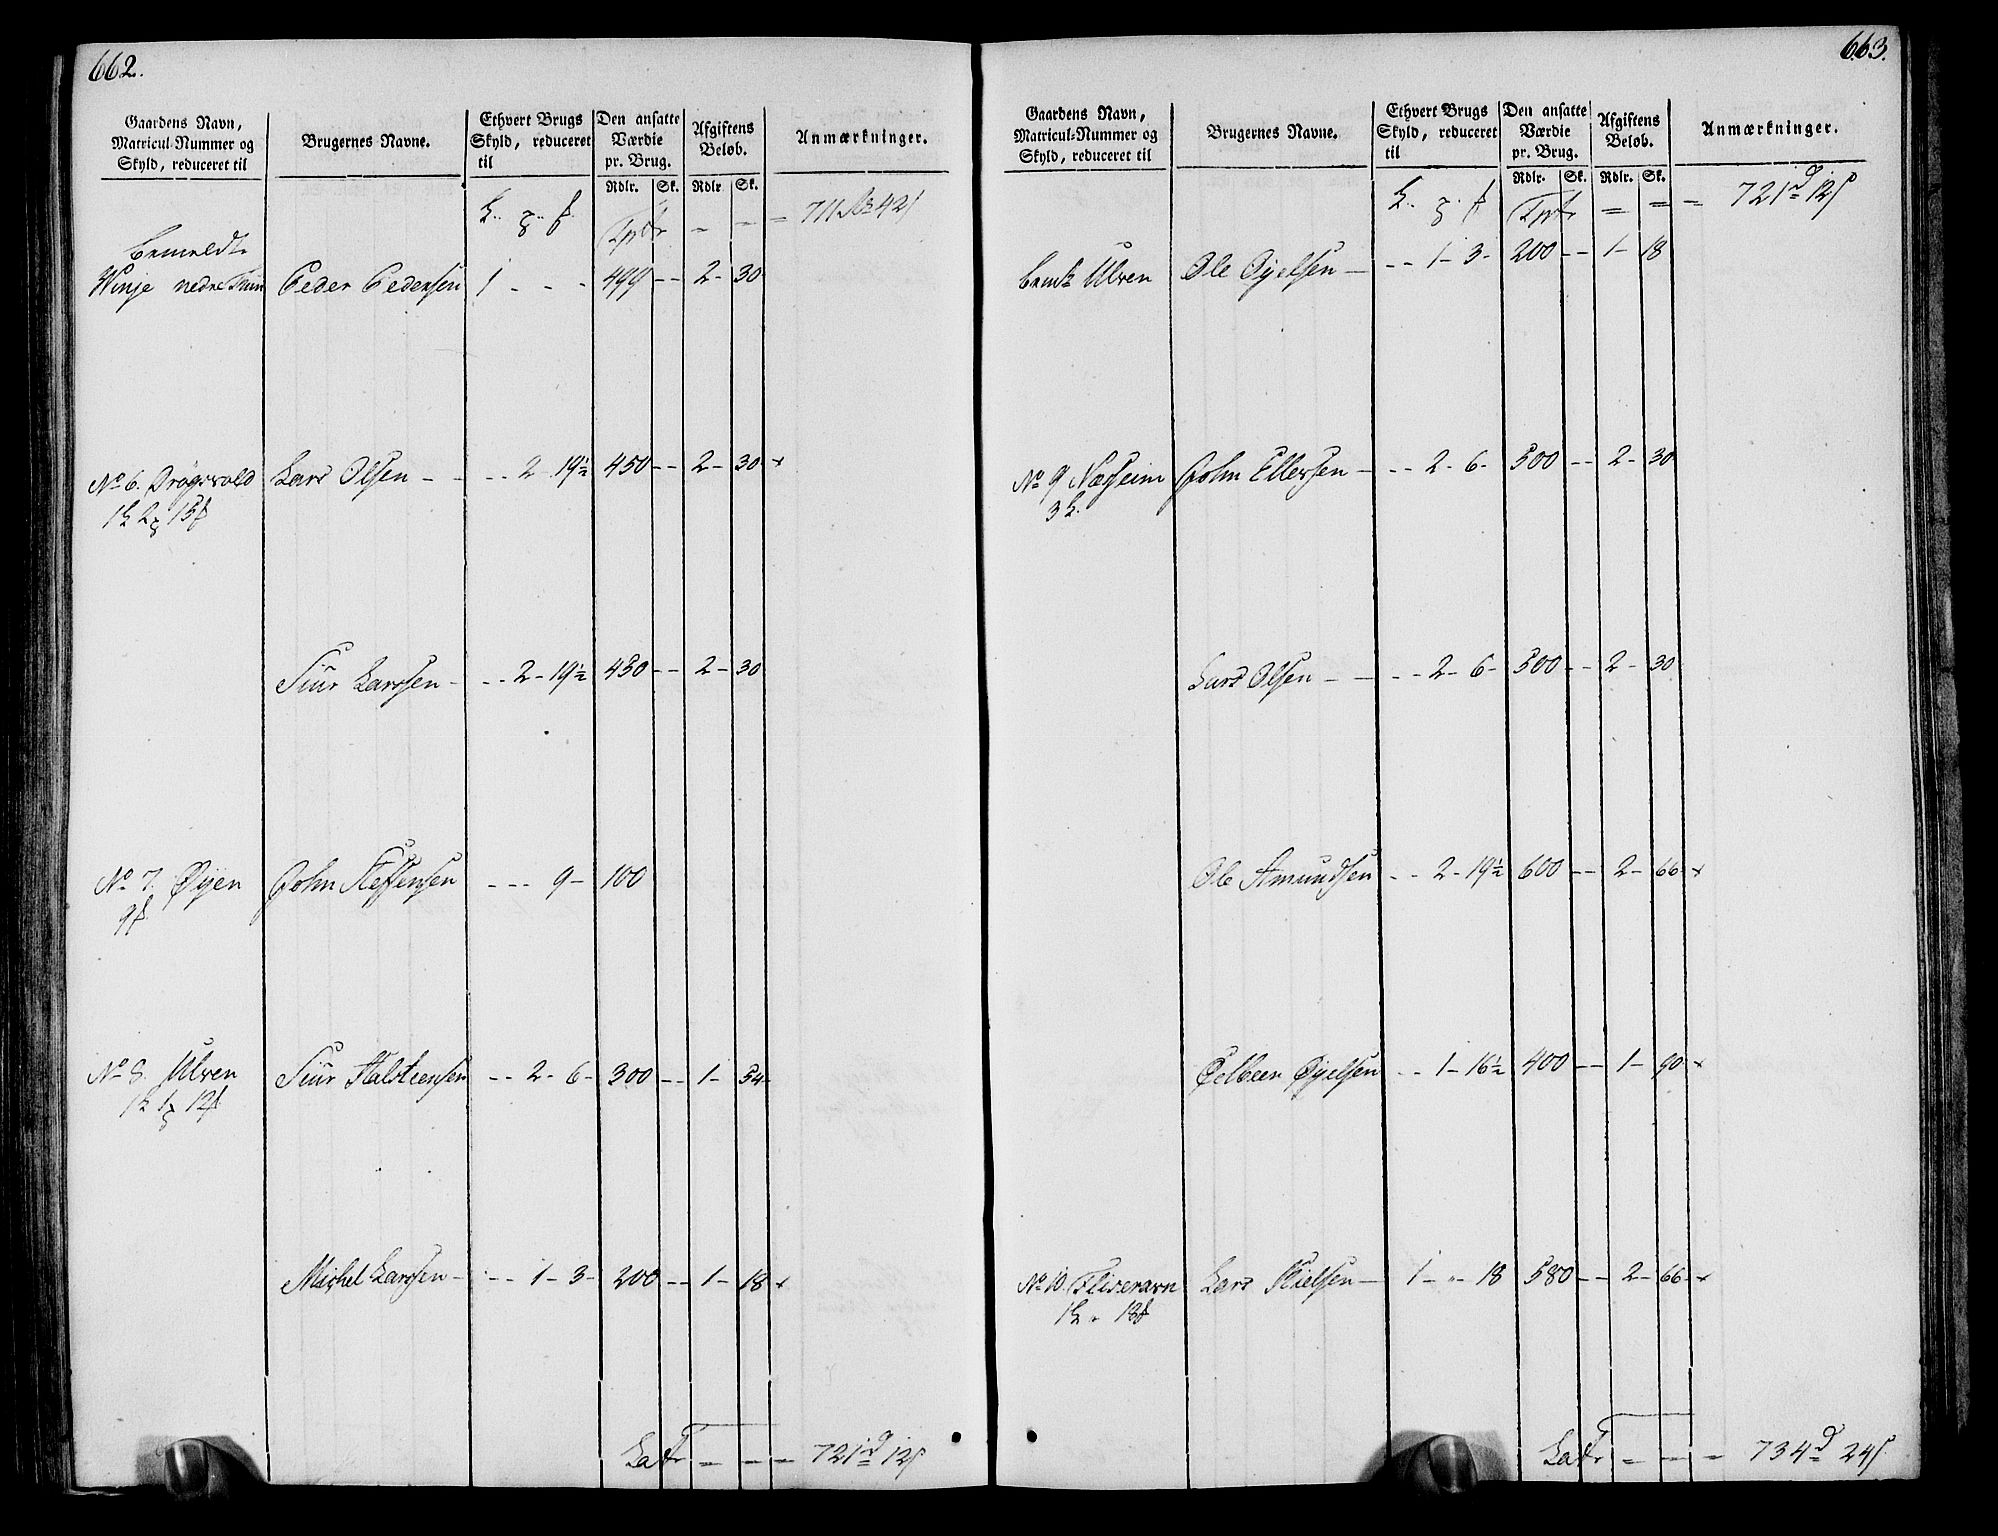 662.
Gaardens Navn, Matricul-Nummer og Skyld, reduceret til | Brugernes Navne. | Ethvert Brugs Skyld, reduceret til | Den ansatte Værdie pr. Brug. | Afgiftens Beløb. | Anmærkninger.
Rdlr. Sk. Rdlr. Sk.
Trptr - - = 711 42ſ
bemeldte
Winje nedre Peder Pedersen 1 - - - 499 -- 2- 30
No 6. Drøgsvold Lars Olsen - - -- 2- 19½ 450 -- 2- 30 +
1 2 15
Siur Larssen - -- 2- 19½ 450 -- 2- 30
No 7. Øyen John Steffensen --- 9- 100
9
No 8. Ulven Siur Halsteensen -- 2- 6- 300 -- 1- 54-
1 1 12
Michel Larssen - -- 1- 3- 200 -- 1- 18 +
Latr = - = 721 12ſ
663.
Gaardens Navn, Matricul-Nummer og Skyld, reduceret til | Brugernes Navne. | Ethvert Brugs Skyld, reduceret til | Den ansatte Værdie pr. Brug. | Afgiftens Beløb. | Anmærkninger.
Rdlr. Sk. Rdlr. Sk.
Trptr = = = 721 12ſ
Ulven Ole -- 1- 3- 200 -- 1- 18
No 9 Næsheim John Ellefsen - -- 2- 6- 500 -- 2- 30
3
Lars Olsen - - -- 2- 6- 500 -- 2- 30
Ole Amundsen -- 2- 19½ 600 -- 2- 66 +
-- 1- 16½ 400 -- 1- 90 +
No 10. Lars Nielsen - 1 - " - 18 580 -- 2- 66 +
1 " 18
Latr = - = 734 24ſ